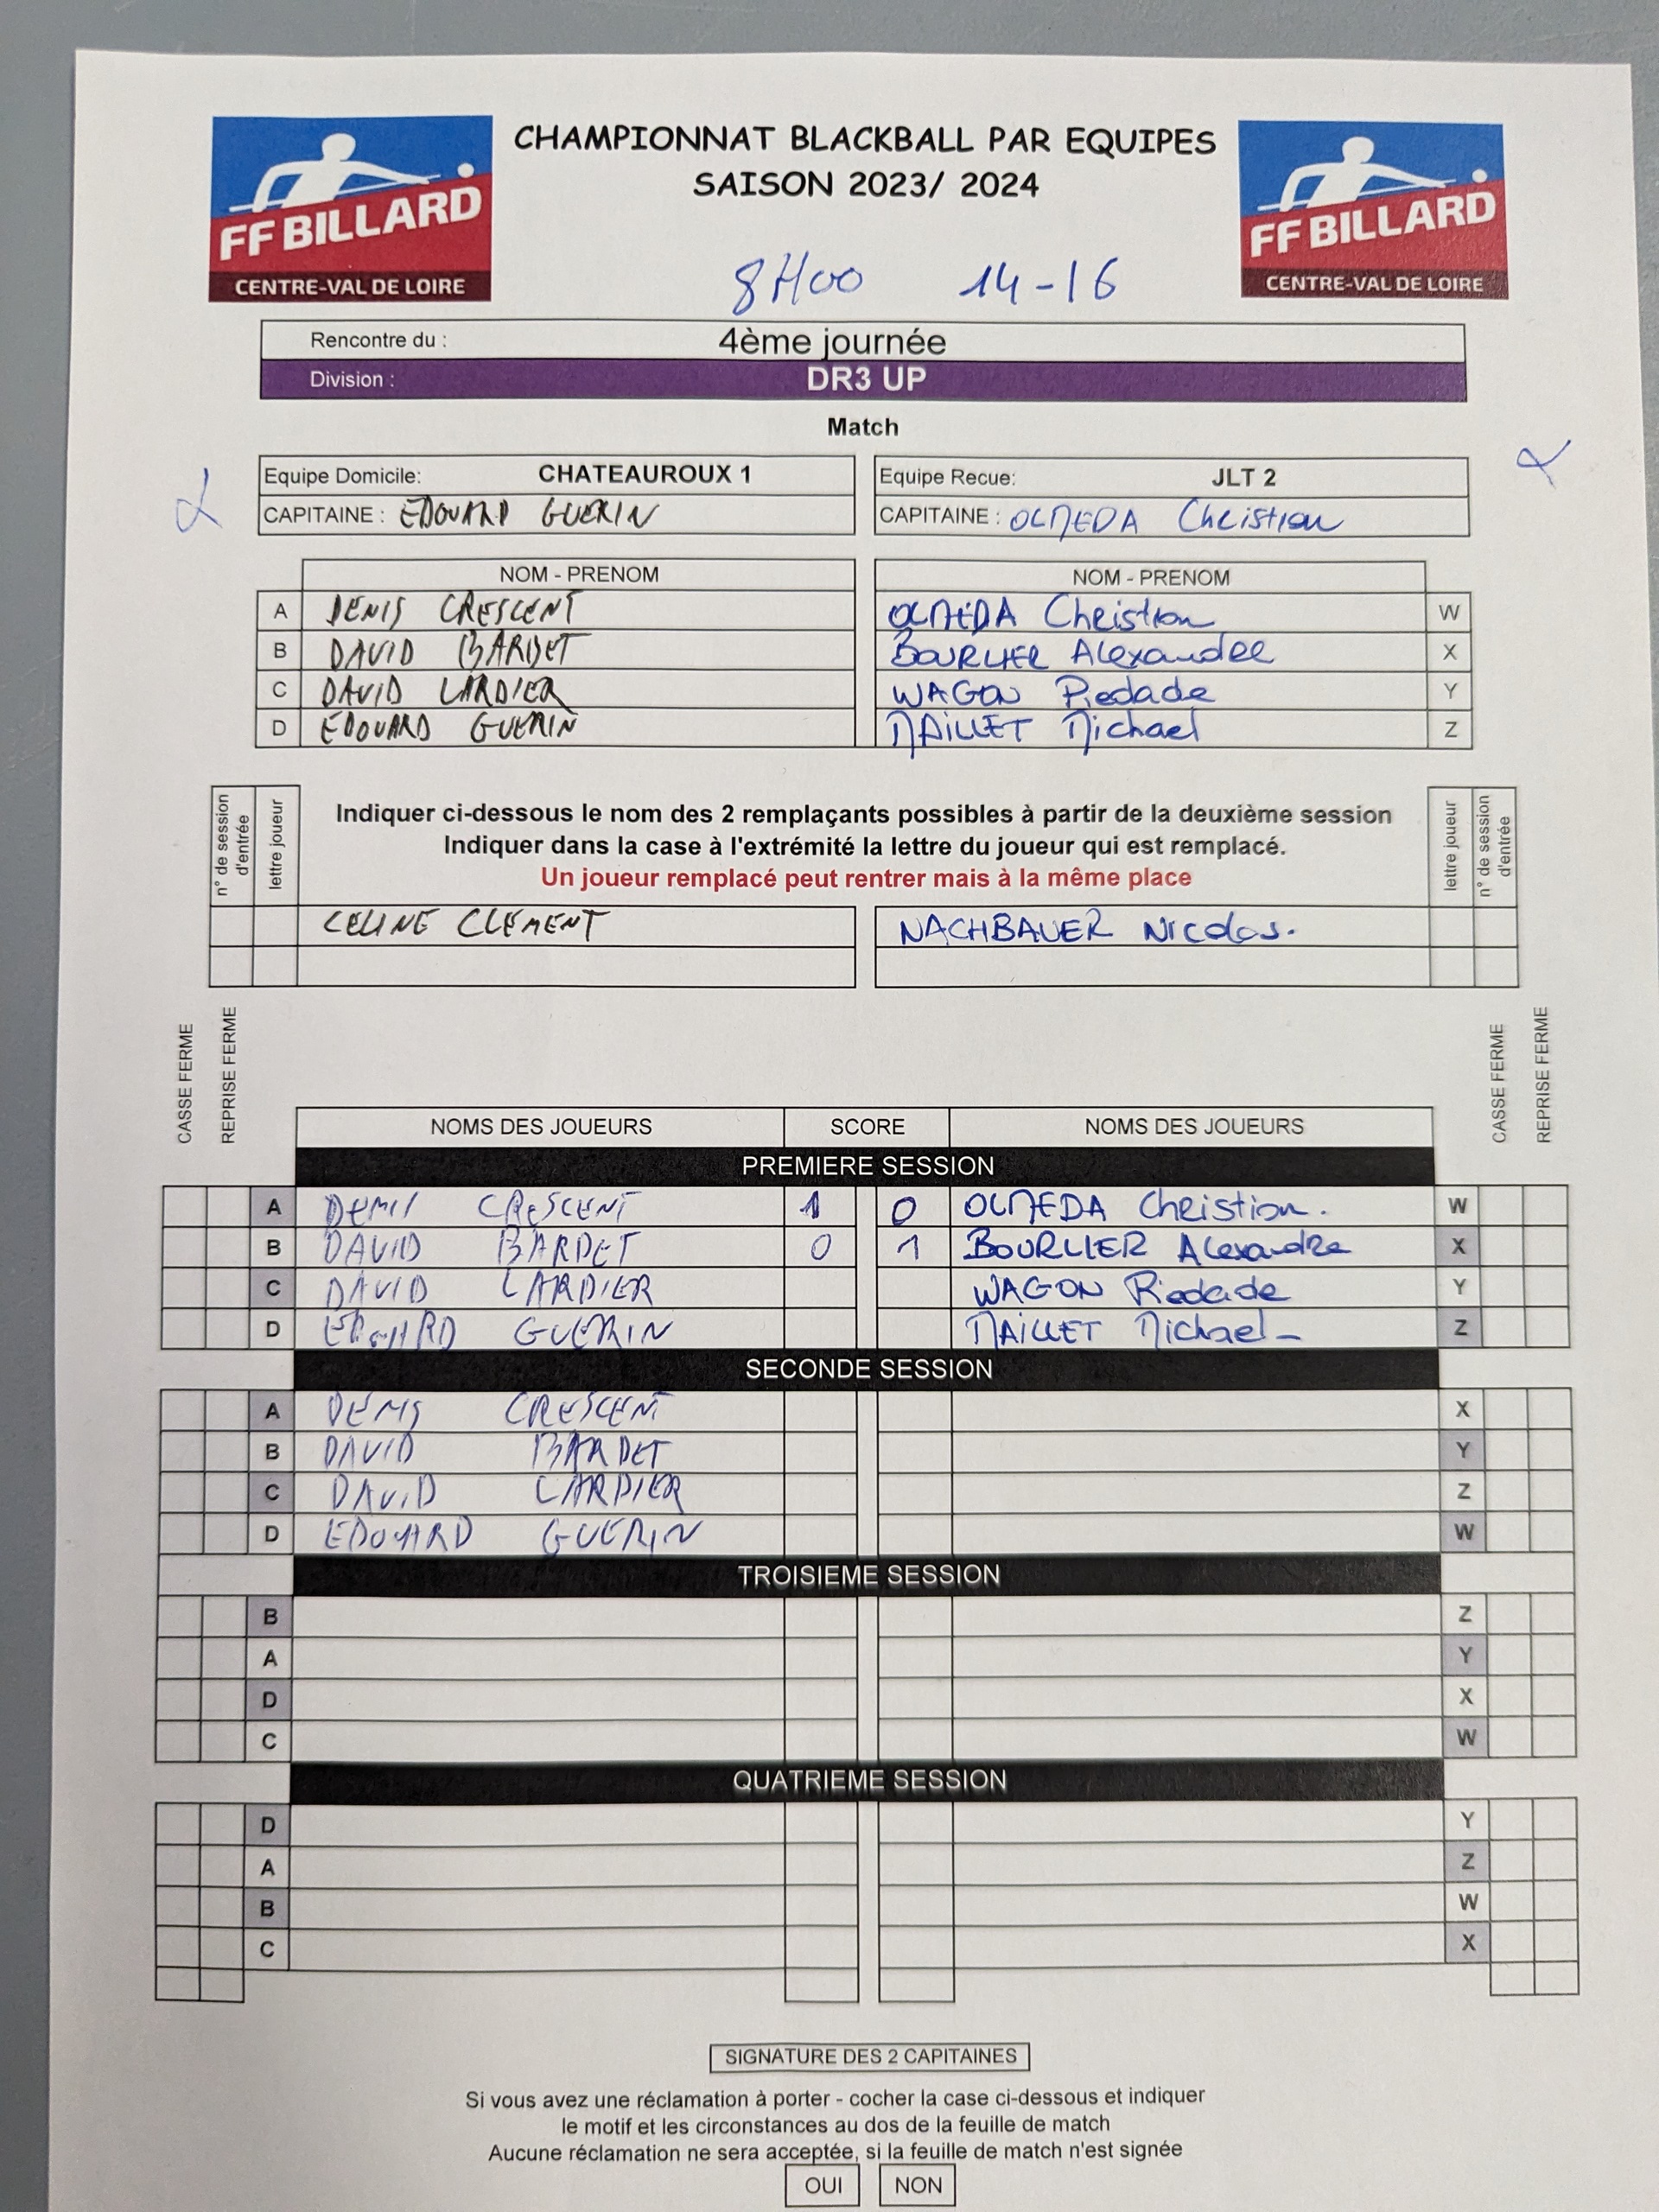 CHAMPIONNAT BLACKBALL PAR EQUIPES
SAISON 2023/ 2024
FF BILLARD
CENTRE-VAL DE LOIRE
FF BILLARD
CENTRE-VAL DE LOIRE
8H00 14-16
Rencontre du : 4ème journée
Division : DR3 UP
Match
Equipe Domicile: CHATEAUROUX 1 Equipe Recue: JLT 2
CAPITAINE : EDOUARD GUERIN CAPITAINE : OLMEDA Christian
NOM - PRENOM NOM - PRENOM
A DENIS CRESCENT OLMEDA Christian W
B DAVID BARDET BOURLIER Alexandre X
C DAVID LARDIER WAGON Piedade Y
D EDOUARD GUERIN MAILLET Michael Z
n° de session d'entrée lettre joueur
Indiquer ci-dessous le nom des 2 remplaçants possibles à partir de la deuxième session
Indiquer dans la case à l'extrémité la lettre du joueur qui est remplacé.
Un joueur remplacé peut rentrer mais à la même place
lettre joueur n° de session d'entrée
CELINE CLEMENT NACHBAUER Nicolas.
CASSE FERME REPRISE FERME CASSE FERME REPRISE FERME
NOMS DES JOUEURS SCORE NOMS DES JOUEURS
PREMIERE SESSION
A DENIS CRESCENT 1 0 OLMEDA Christian. W
B DAVID BARDET 0 1 BOURLIER Alexandre X
C DAVID LARDIER WAGON Piedade Y
D EDOUARD GUERIN MAILLET Michael_ Z
SECONDE SESSION
A DENIS CRESCENT X
B DAVID BARDET Y
C DAVID LARDIER Z
D EDOUARD GUERIN W
TROISIEME SESSION
B Z
A Y
D X
C W
QUATRIEME SESSION
D Y
A Z
B W
C X
SIGNATURE DES 2 CAPITAINES
Si vous avez une réclamation à porter - cocher la case ci-dessous et indiquer
le motif et les circonstances au dos de la feuille de match
Aucune réclamation ne sera acceptée, si la feuille de match n'est signée
OUI NON